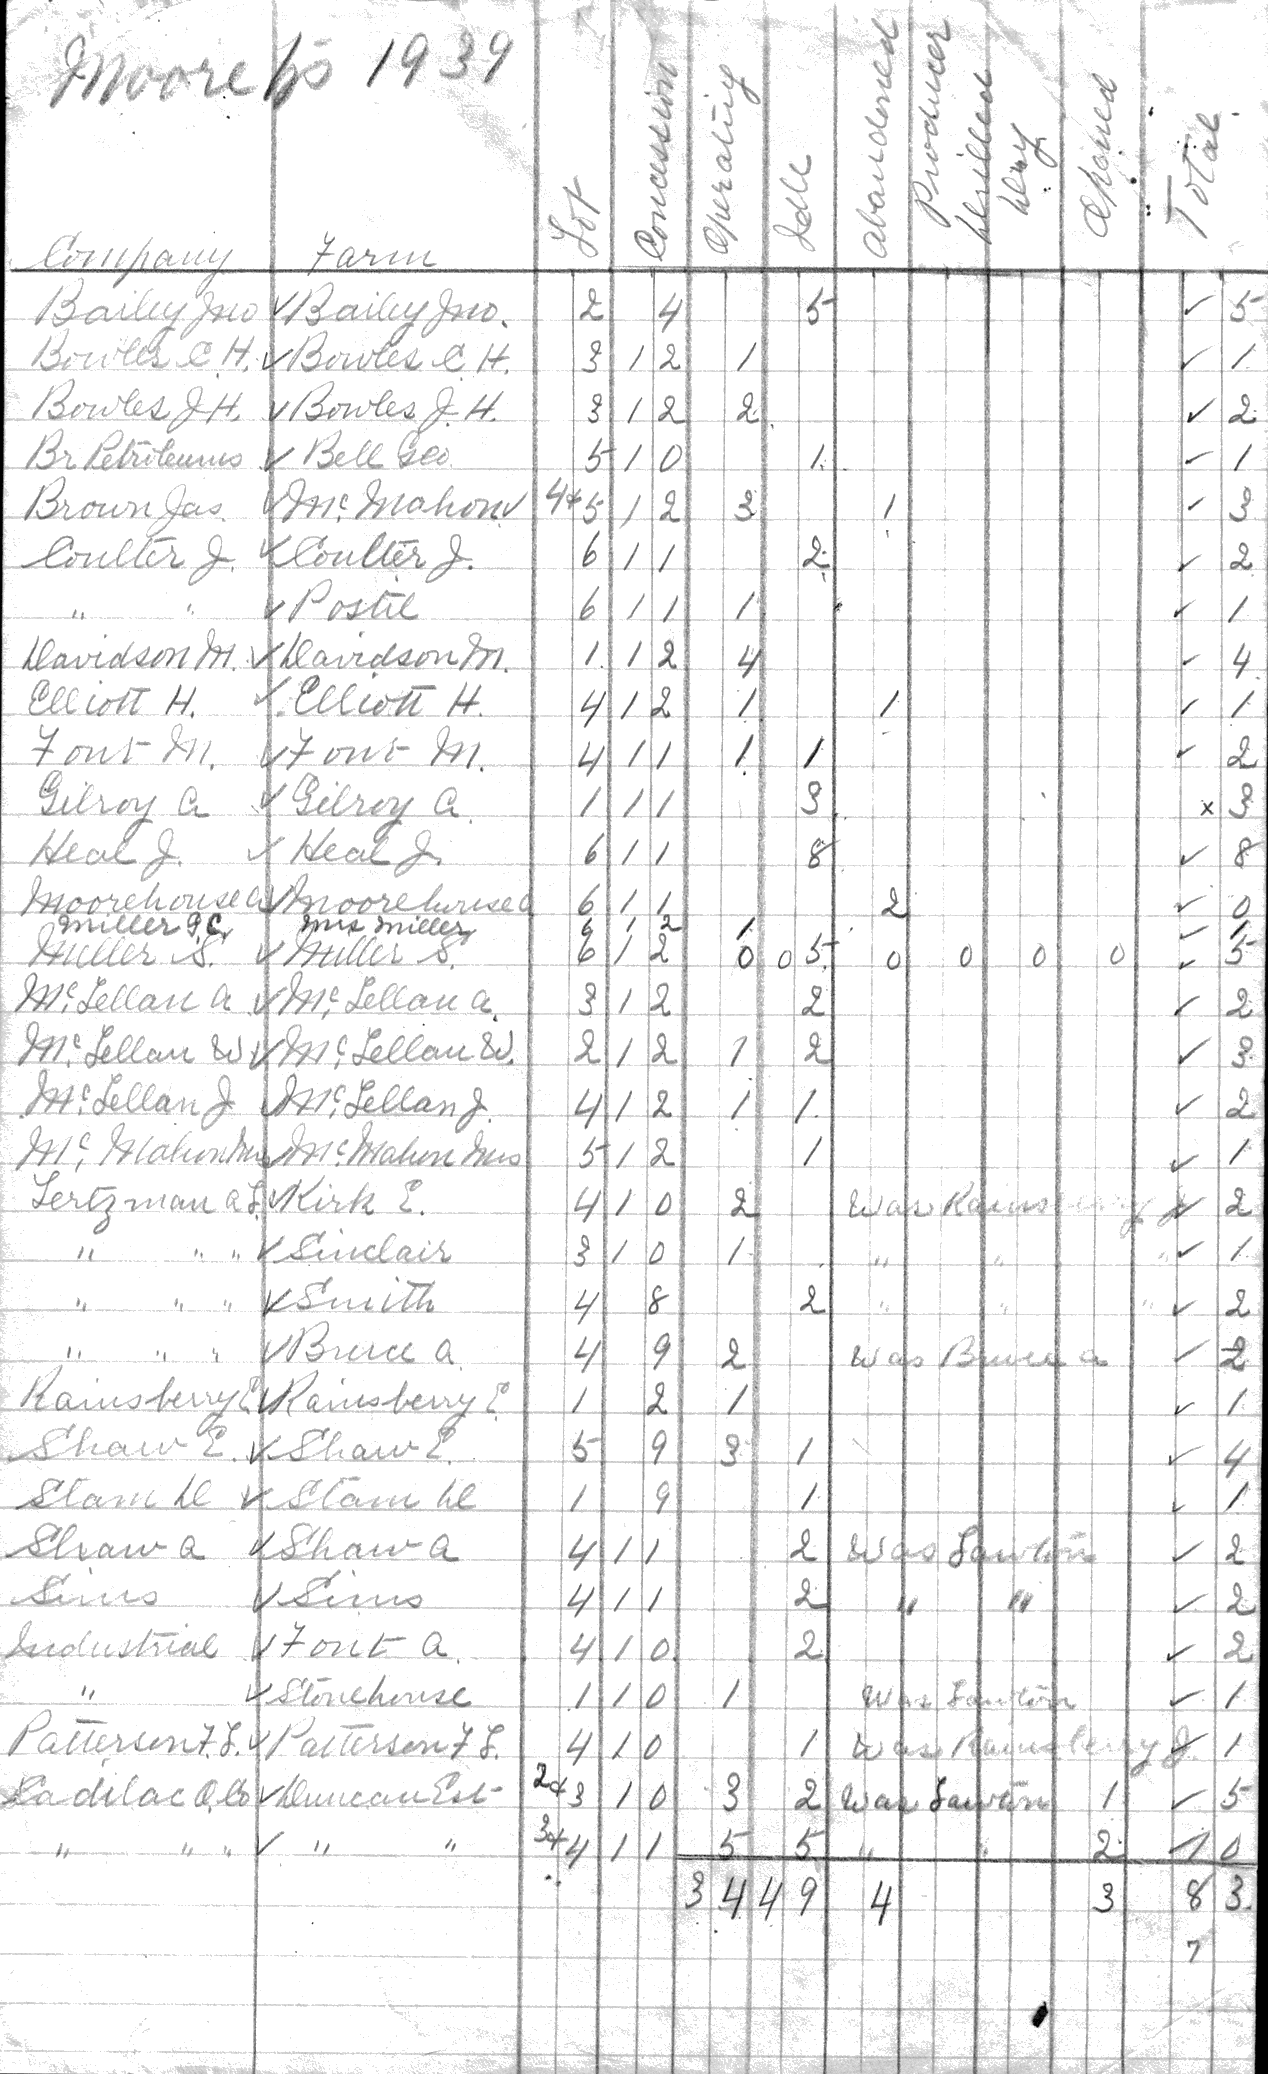 Moore Tp 1939
Company Farm Lot Concession Operating Idle Abandoned Producer Drilled Dry Opened Total
Bailey Jno ✓ Bailey Jno. 2 4 5 ✓ 5
Bowles C. H. ✓ Bowles C. H. 3 12 1 ✓ 1
Bowles J. H. ✓ Bowles J. H. 3 12 2 ✓ 2
Br Petroleums ✓ Bell Geo. 5 10 1 ✓ 1
Brown Jas. ✓ Mc Mahon ✓ 4+5 12 3 1 ✓ 3
Coulter J. ✓ Coulter J. 6 11 2 ✓ 2
" " ✓ Postil 6 11 1 ✓ 1
Davidson M. ✓ Davidson M. 1 12 4 ✓ 4
Elliott H. ✓ Elliott H. 4 12 1 1 ✓ 1
Font M. ✓ Font M. 4 11 1 1 ✓ 2
Gilroy A ✓ Gilroy A. 1 11 3 x 3
Heal J. ✓ Heal J. 6 11 8 ✓ 8
Moorehouse A ✓ Moorehouse A 6 11 2 ✓ 0
Miller P.C. Mrs Miller 6 12 1 ✓ 1
Miller S. ✓ Miller S. 6 12 0 0 5 0 0 0 0 ✓ 5
Mc Lellan A ✓ Mc Lellan A. 3 12 2 ✓ 2
Mc Lellan W ✓ Mc Lellan W. 2 12 1 2 ✓ 3
Mc Lellan J ✓ Mc Lellan J. 4 12 1 1 ✓ 2
Mc Mahon Mrs ✓ Mc Mahon Mrs 5 12 1 ✓ 1
Lertzman A L. ✓ Kirk E. 4 10 2 Was Rainsberry J ✓ 2
" " " ✓ Sinclair 3 10 1 " " " ✓ 1
" " " ✓ Smith 4 8 2 " " " ✓ 2
" " " ✓ Bruce A. 4 9 2 Was Bruce A ✓ 2
Rainsberry E ✓ Rainsberry E. 1 2 1 ✓ 1
Shaw E. ✓ Shaw E. 5 9 3 1 ✓ 4
Stam D ✓ Stam D 1 9 1 ✓ 1
Shaw A ✓ Shaw A 4 11 2 Was Lawton ✓ 2
Sims ✓ Sims 4 11 2 " " ✓ 2
Industrial ✓ Font A. 4 10 2 ✓ 2
" ✓ Stonehouse 1 10 1 Was Lawton ✓ 1
Patterson F. L. ✓ Patterson F L. 4 10 1 Was Rainsberry J. ✓ 1
Cadilac O. Co ✓ Duncan Est 2+3 10 3 2 Was Lawton 1 ✓ 5
" " " ✓ " " 3+4 11 5 5 " " 2 ✓ 10
34 49 4 3 83
7